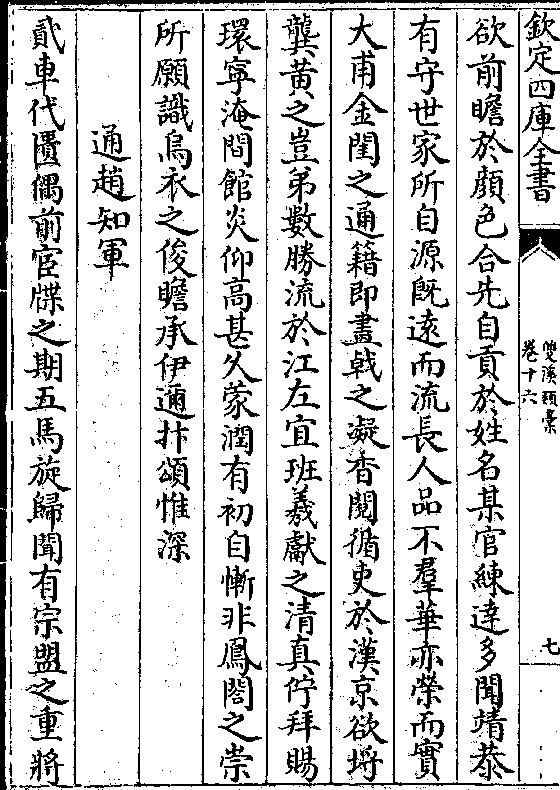 欽定四庫全書
雙溪類稾
卷十六
七
欲前瞻於顔色合先自貢於姓名某官練達多聞靖恭
有守世家所自源旣遠而流長人品不羣華亦榮而實
大甫金閨之通籍即畫戟之凝香閱循吏於漢京欲埒
龔黃之豈弟數勝流於江左宜班羲獻之清真佇拜賜
環寧淹間館炎仰高甚久蒙潤有初自慚非鳳閣之崇
所願識烏衣之俊瞻承伊邇抃頌惟深
通趙知軍
貳車代匱偶前宦牒之期五馬旋歸聞有宗盟之重將